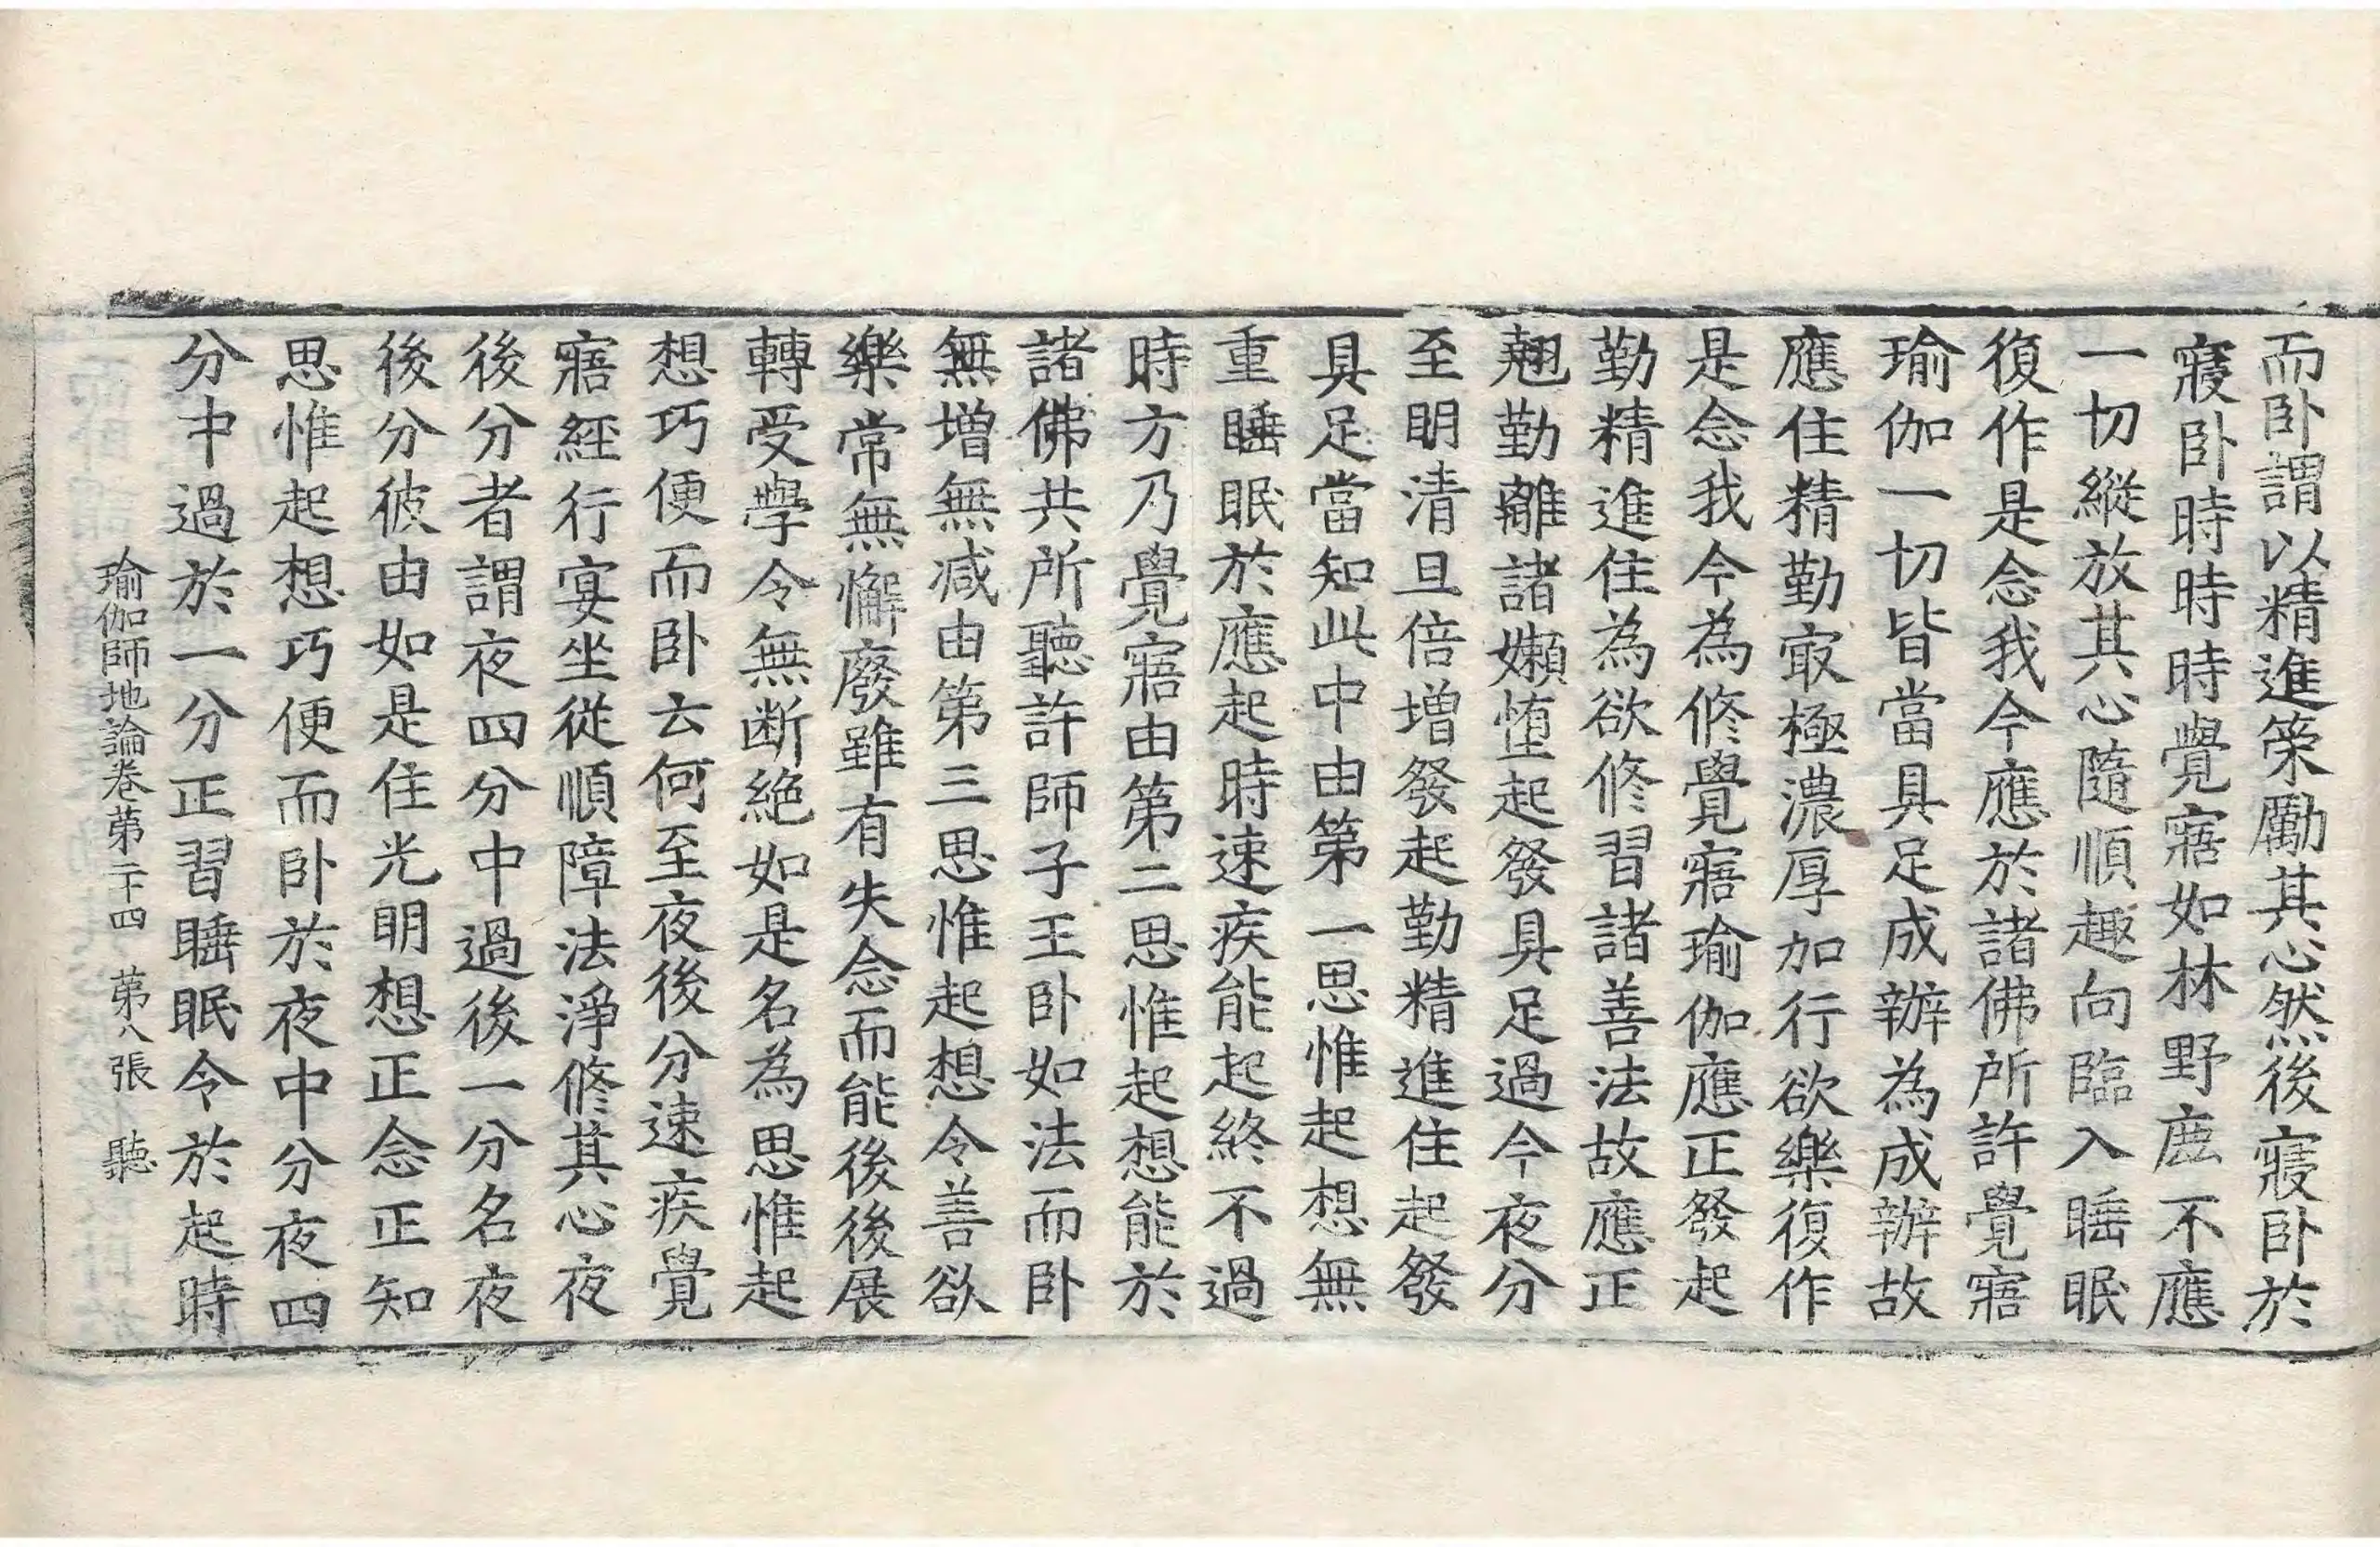 而卧謂以精進策勵其心然後寢卧於
寢卧時時時覺寤如林野鹿不應
一切縱放其心隨順趣向臨入睡眠
復作是念我今應於諸佛所許覺寤
瑜伽一切皆當具足成辦為成辦故
應住精勤㝡極濃厚加行欲樂復作
是念我今為修覺寤瑜伽應正發起
勤精進住為欲修習諸善法故應正
翹勤離諸嬾憧起發具足過今夜分
至明清旦倍增發起勤精進住起發
具足當知此中由第一思惟起想無
重睡眠於應起時速疾能起終不過
時方乃覺寤由第二思惟起想能於
諸佛共所聽許師子王卧如法而卧
無增無减由第三思惟起想令善欲
樂常無懈廢雖有失念而能後後展
轉受學令無断絶如是名為思惟起
想巧便而卧云何至夜後分速疾覺
寤經行宴坐從順障法淨修其心夜
後分者謂夜四分中過後一分名夜
後分彼由如是住光明想正念正知
思惟起想巧便而卧於夜中分夜四
分中過於一分正習睡眠令於起時
瑜伽師地論卷苐二十四　苐八張　聽